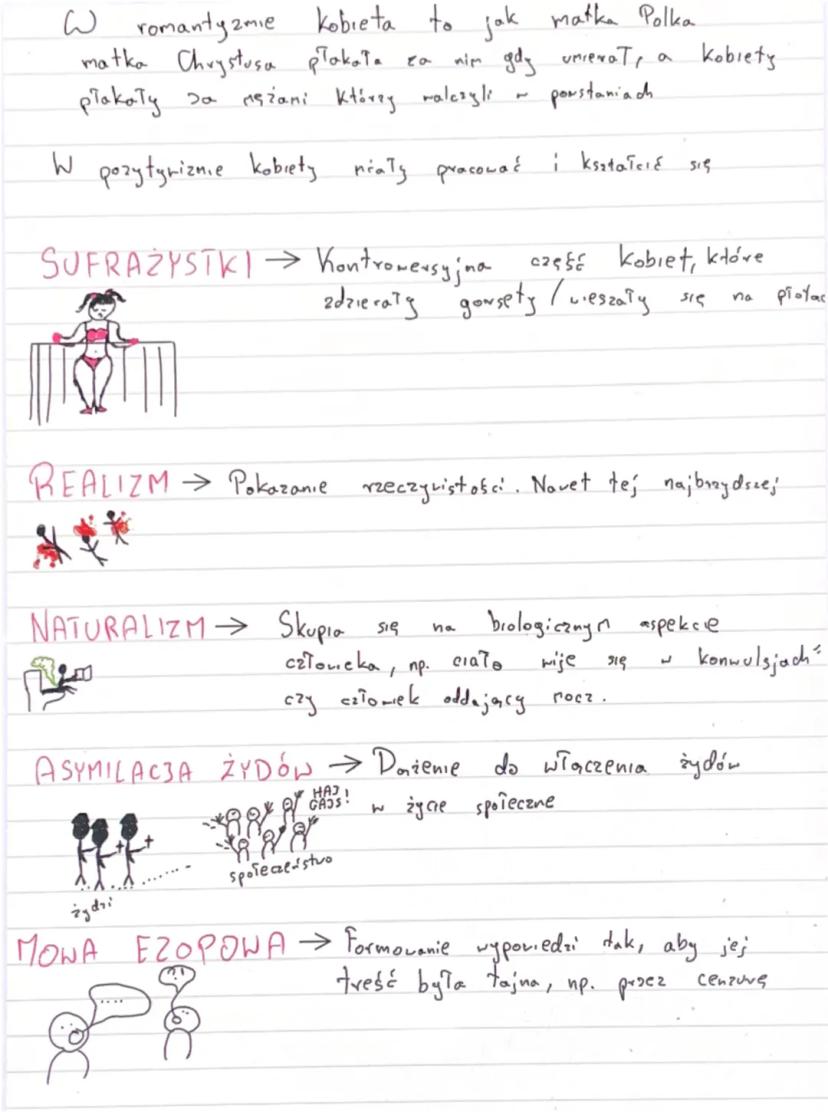 W romantyzmie kobieta to jak matka Polka
matka Chrystusa płakała za nim gdy umierał, a kobiety
płakały za mężami którzy walczyli w powstaniach
W pozytywizmie kobiety miały pracować i kształcić się
SUFRAŻYSTKI → Kontrowersyjna część kobiet, które
zdzierały gorsety / wieszały się na płotac
REALIZM → Pokazanie rzeczywistości. Nawet tej najbrzydszej
NATURALIZM → Skupia się na biologicznym aspekcie
człowieka, np. ciało wije się w konwulsjach
czy człowiek oddający mocz.
ASYMILACJA ŻYDÓW → Dążenie do włączenia żydów
w życie społeczne
HAJ!
GAJS!
społeczeństwo
żydzi
MOWA EZOPOWA → Formowanie wypowiedzi tak, aby jej
treść była tajna, np. przez cenzurę
....
?!